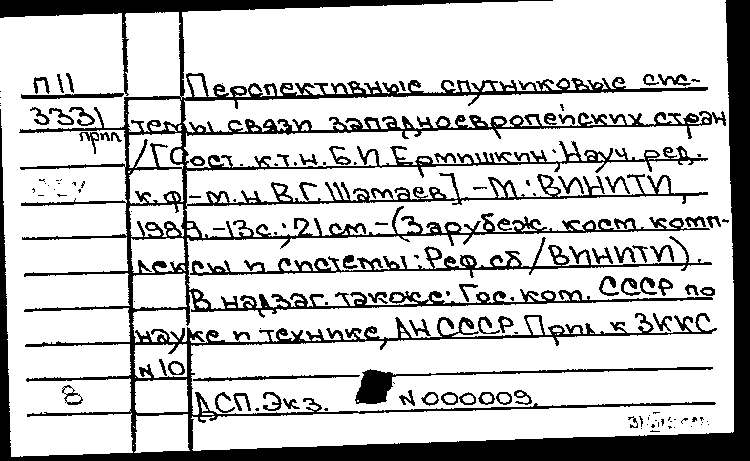 П11 Перспективные спутниковые сис-
3331 темы связи западноевропейских стран
прил
/[Сост. к.т.н. Б.И. Ермишкин; Науч. ред.
к.ф-м.н. В.Г. Шатаев]. - М.: ВИНИТИ,
1989. - 13 с.; 21 см. - (Зарубеж. косм. комп-
лексы и системы: Реф. сб / ВИНИТИ).
В надзаг. также: Гос. ком. СССР по
науке и технике, АН СССР. Прил. к ЗККС
N 10
8 ДСП. Экз. N 000009.